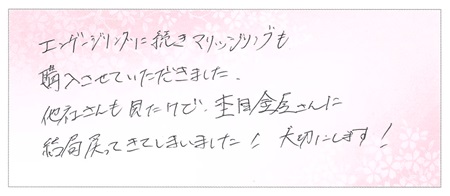 エンゲージリングに続きマリッジリングも
購入させていただきました。
他社さんも見たけど、杢目金屋さんに
結局戻ってきてしまいました! 大切にします!